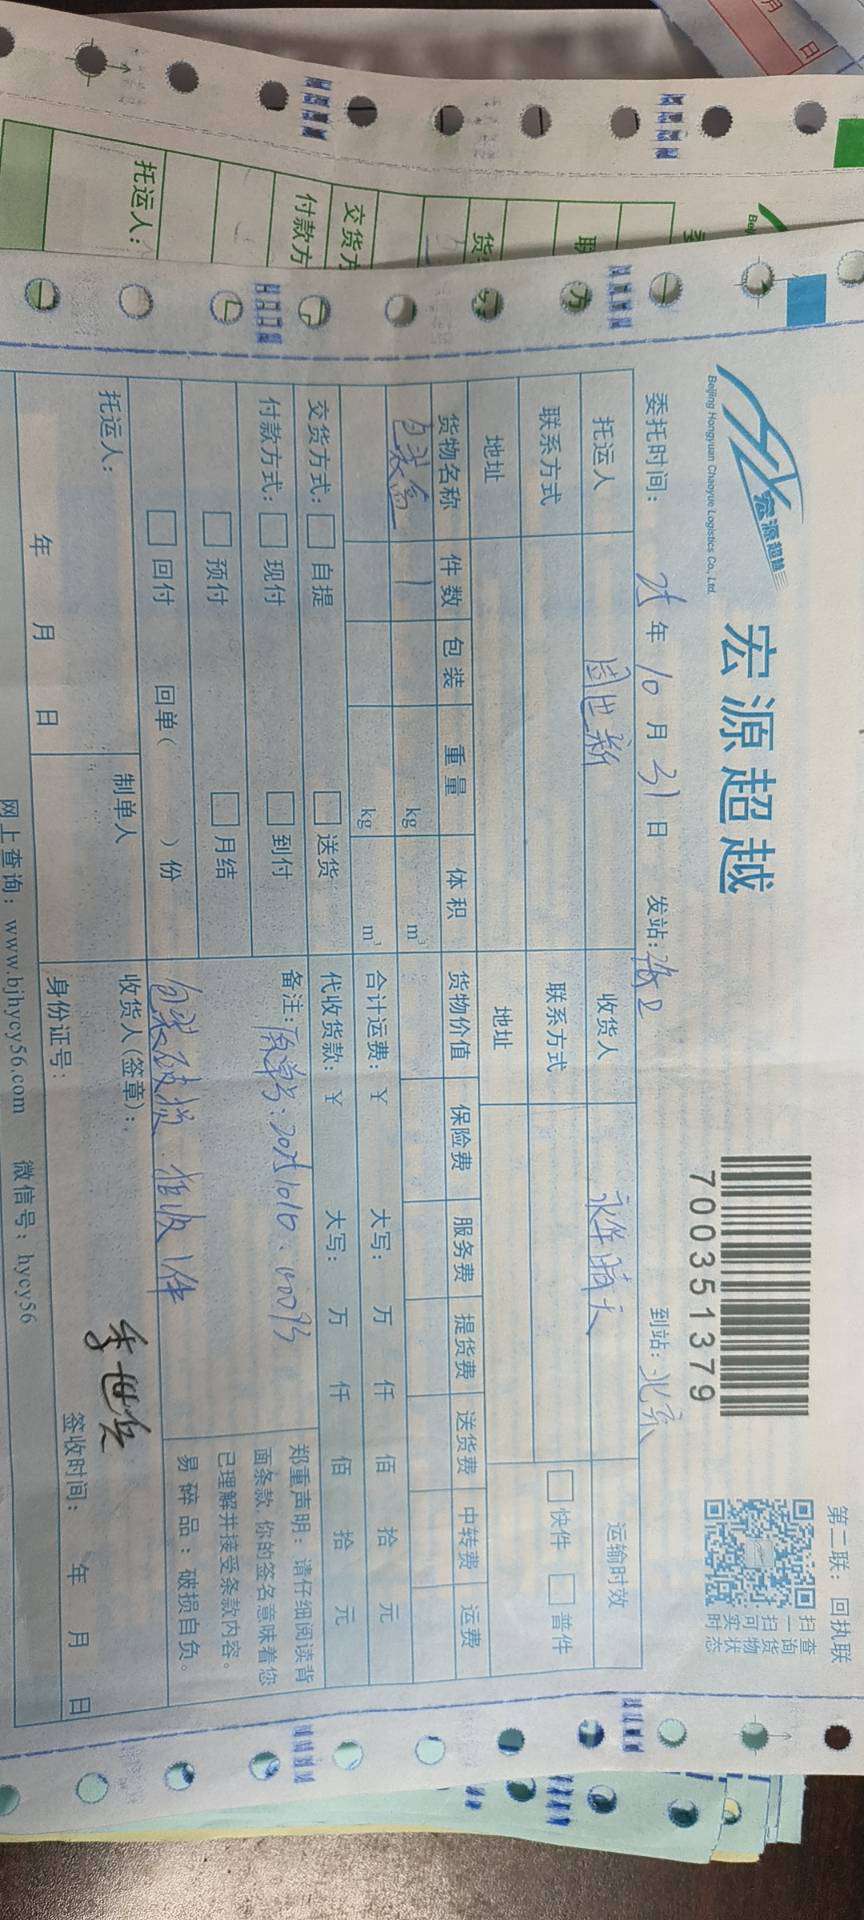 宏源超越
Beijing Hongyuan Chaoyue Logistics Co., Ltd.
宏源超越
700351379
第二联：回执联
扫一扫可实时
查询货物状态
委托时间： 25 年 10 月 31 日 发站： 到站：北京
托运人 周世新 收货人 运输时效
联系方式 联系方式 快件 普件
地址 地址
货物名称 件数 包装 重量 体积 货物价值 保险费 服务费 提货费 送货费 中转费 运费
1 kg m³
kg m³ 合计运费：￥ 大写： 万 仟 佰 拾 元
交货方式： 自提 送货 代收货款：￥ 大写： 万 仟 佰 拾 元
付款方式： 现付 到付 备注：原单号：
预付 月结
回付 回单（ ）份 包装破损 拒收1件
郑重声明：请仔细阅读背
面条款，你的签名意味着您
已理解并接受条款内容。
易碎品：破损自负。
托运人： 制单人 收货人(签章)： 李世兵
年 月 日 身份证号： 签收时间： 年 月 日
网上查询：www.bjhycy56.com 微信号：hycy56
托运人：
付款方
交货方
货
联
月 日